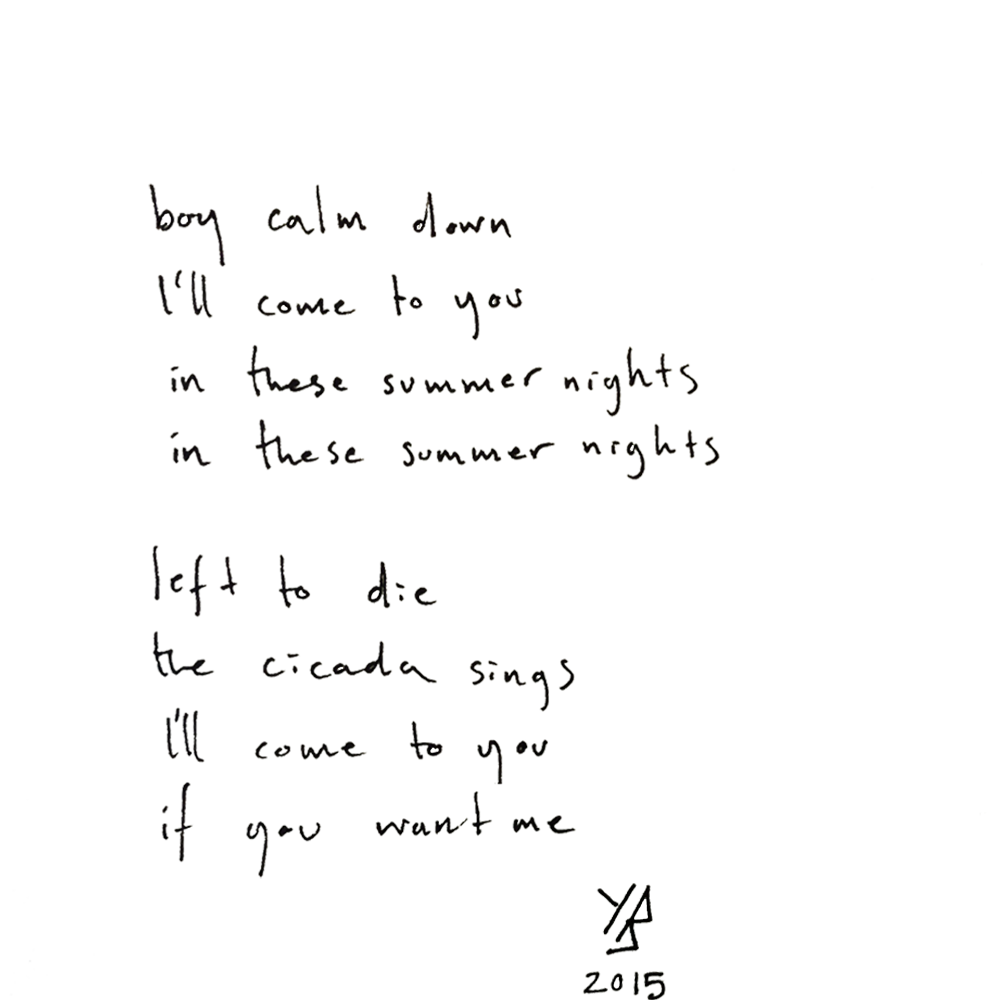 boy calm down
I'll come to you
in these summer nights
in these summer nights
left to die
the cicada sings
I'll come to you
if you want me
2015